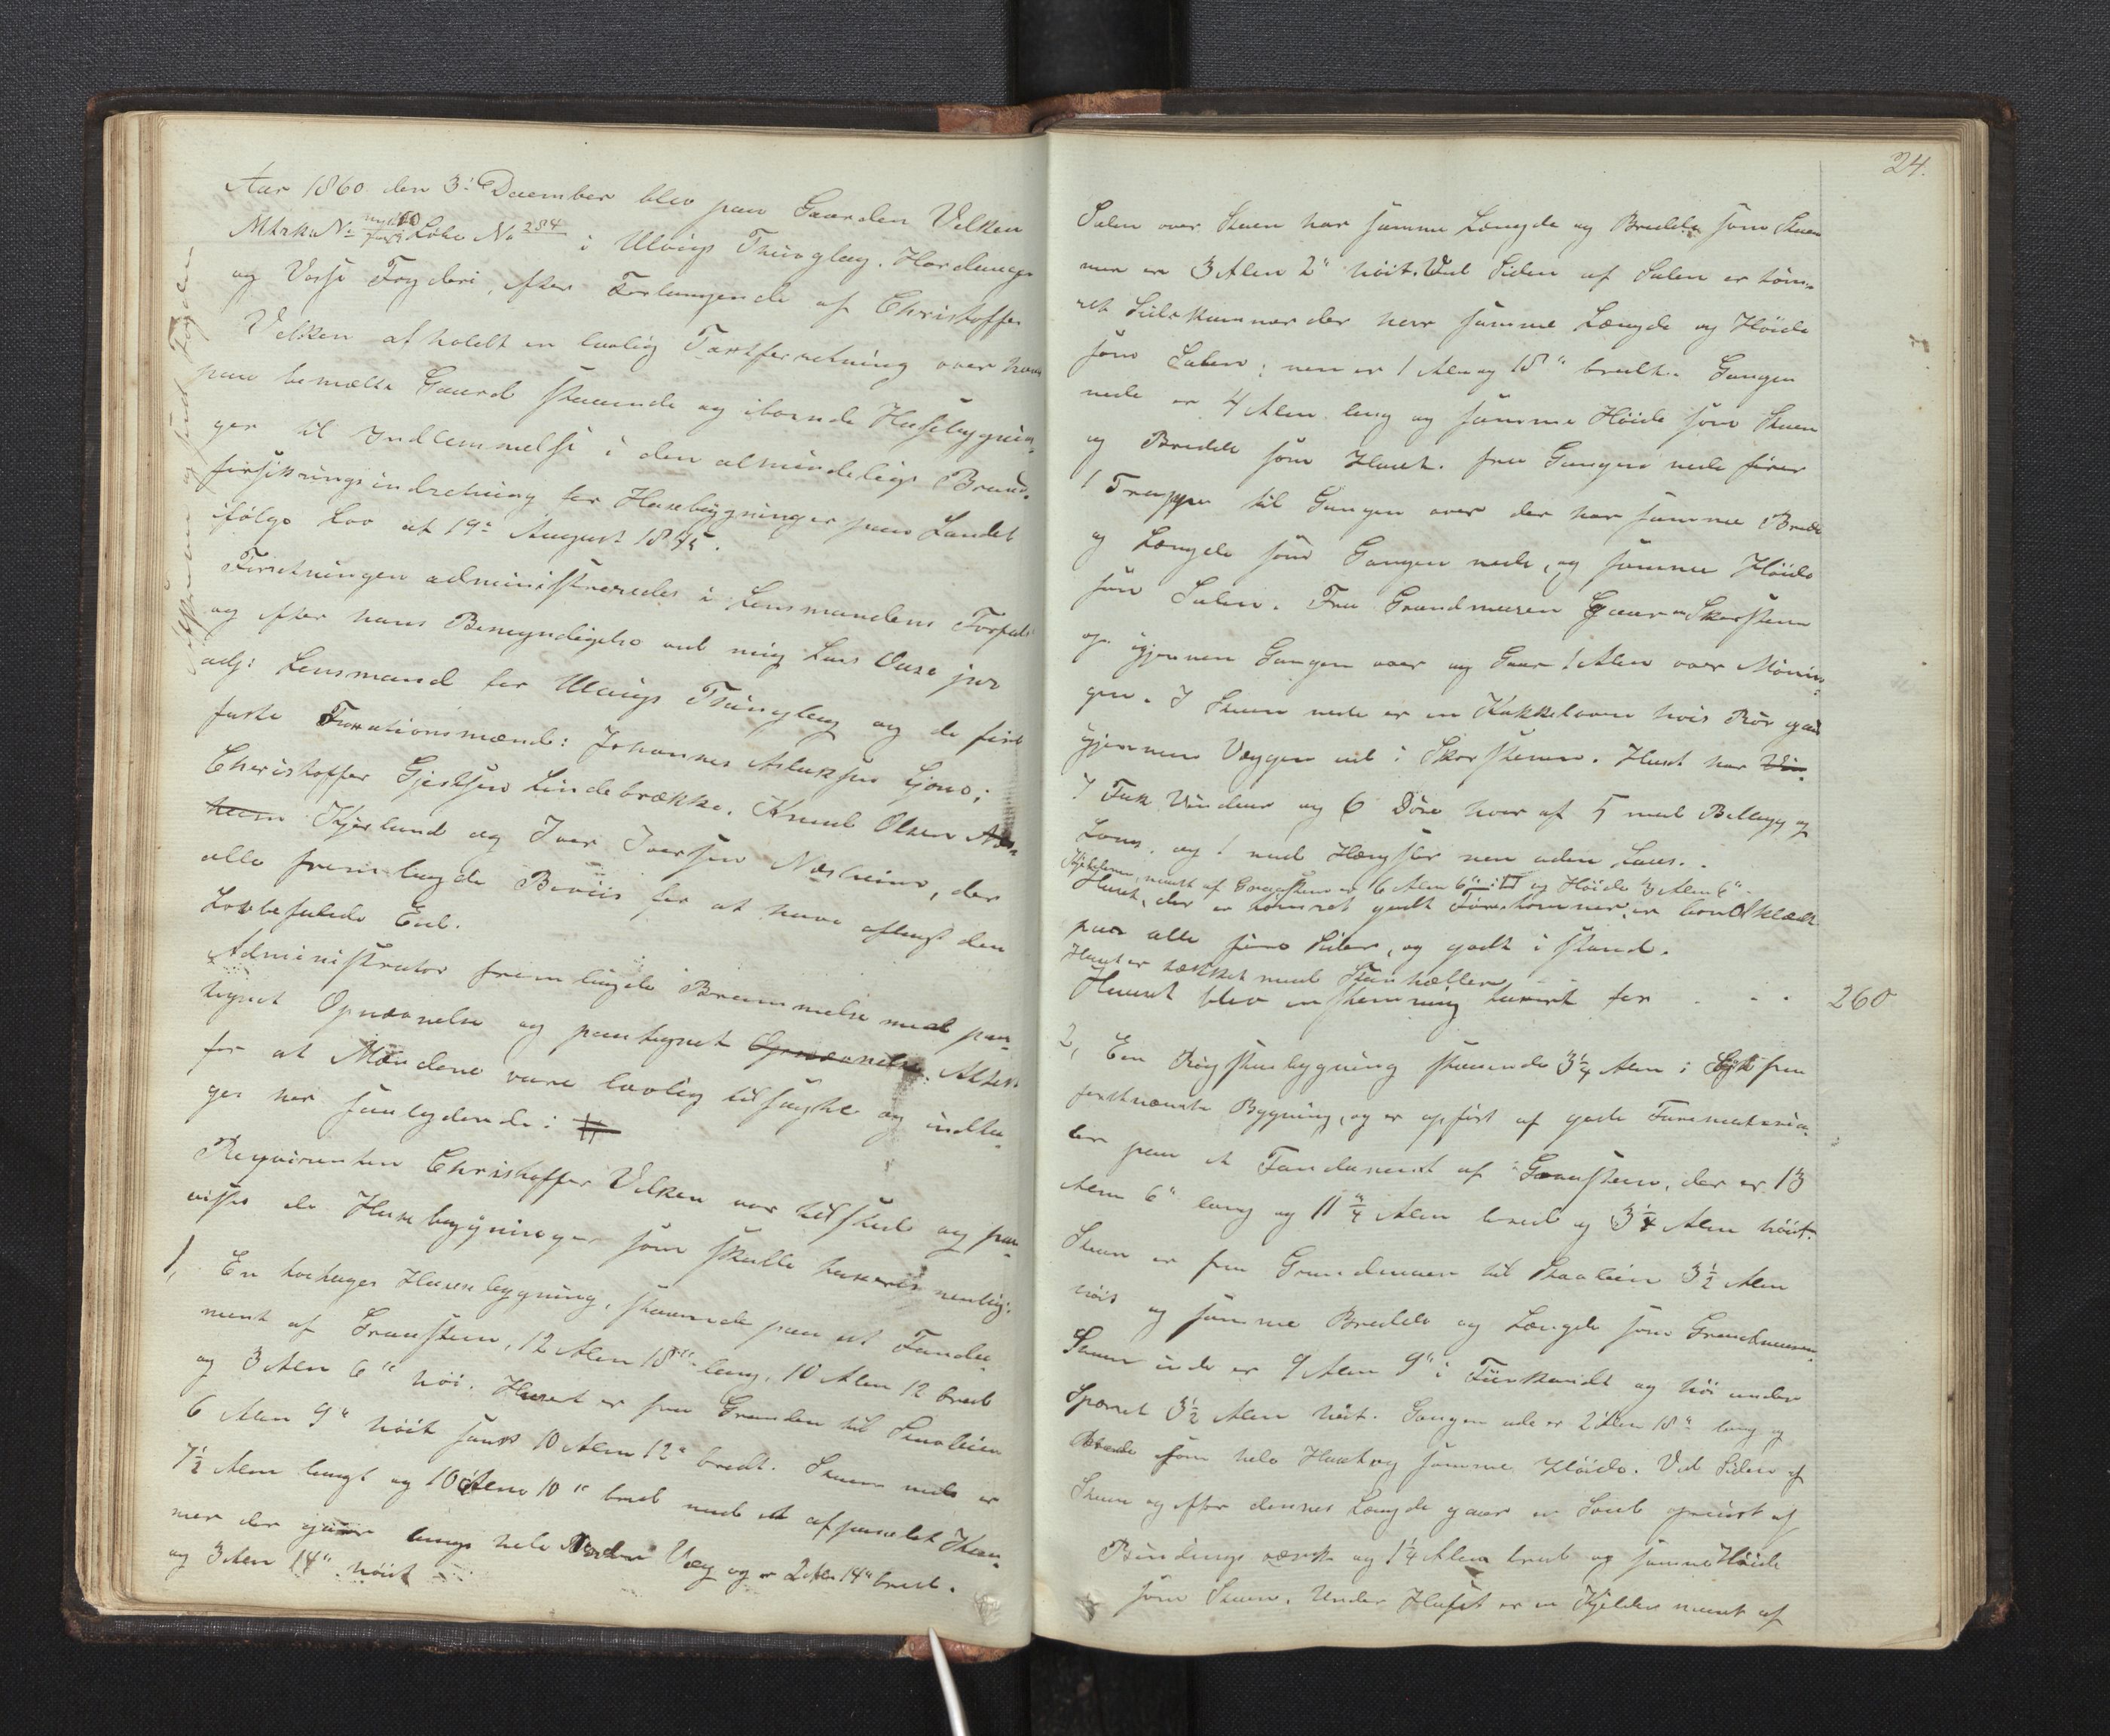 Aar 1860 den 3die December blev paa Gaarden Velken
Mtrku No 60 Løbe No 284 i Ulviks Thinglag, Hardanger
og Vosse Fogderi, efter Forlangende af Christoffer
Velken afholdt en lovlig Taxtforretning over hans
paa bemælte Gaard staaende og iboende Husebygnin-
ger til Indlemmelse i den almindelige Brand-
forsikringsindretning for Husebygninger paa Landet
ifølge Lov af 19de August 1845.
Forretningen administreredes i Lensmandens Forfald
og efter hans Bemyndigelse ved mig Lars
adj: Lensmand for Ulviks Thinglag og de fire
faste Taxationsmænd: Johannes Aslaksen Ljono;
Christoffer Gjertsen Lindebrække, Knud Olsen
Kjerland og Iver Iversen Næsheim, der
alle fremlagde Beviis for at have aflagt den
Lovbefalede Eed.
Administrator fremlagde Berammelse med paa-
tegnet Opnævnelse og paategnet Opnævnelse Attest
for at Mændene vare lovlig tilsagte og indta-
ges her saalydende: #
Requirenten Christoffer Velken var tilstede og paa-
viste de Husebygninger som skulle taxeres nemlig:
1, En toetages Huusebygning, staaende paa et Funda-
ment af Graasteen, 12 Alen 18" lang, 10 Alen 12 bred
og 3 Alen 6" høi. Huset er fra Grunden til
6 Alen 9" høit samt 10 Alen 12" bredt. Stuen nede er
7½ Alen langt og 10 Alen 10" bred med et afpanelet Kam-
mer der gaar langs hele Væg og er 2 Al. 14" bred.
og 3 Alen 14" høit
24.
Salen over Stuen har samme Længde og Bredde som Stuen
men er 3 Alen 2" høit. Ved Siden af Salen er tøm-
ret der har samme Længde og Høide
som Salen; men er 1 Alen og 18" bredt. Gangen
nede er 4 Alen lang og samme Høide som Stuen
og Bredde som Huset. fra Gangen nede fører
1 Trappe til Gangen over der har samme Bredde
og Længde som Gangen nede, og samme Høide
som Salen. Fra Grundmuren gaar en Skorsteen
op igjennem Gangen over og gaar 1 Alen over Mønin-
gen. I Stuen nede er en Kakkelovn hvis Rør gaar
igjennem Væggen ud i Skorstenen. Huset har
7 Fak Vinduer og 6 Døre hvor af 5 med Beslag og
Laas, og 1 med Hængsler men uden Laas.
Kjelderen, muret af Graasteen er 6 Alen 6" i □ og Høide 3 Alen 6".
Huset, der er tømret godt Føretømmer, er bordklædt
paa alle fire Sider, og godt i stand.
Huset er tækket med Steenheller
Huuset blev enstemmig taxert for . . . 260
2, En Røgstuebygning staaende 3¼ Alen i fra
førstnævnte Bygning, og er opført af gode Furemateria-
ler paa et Fundament af Graasteen, der er 13
Alen 6" lang og 11¼ Alen bred og 3¼ Alen høit.
Stuen er fra Grundmuren til 3½ Alen
høit og samme Bredde og Længde som Grundmuren.
Stuen inde er 9 Alen 9" i Fiirkandt og høi under
Sparret 3½ Alen høit. Gangen ude er 2 Alen 18" lang og
Brede som hele Huset og samme Høide. Ved Siden af
Stuen og efter dennes Længde gaar en opført af
Bindingsværk og 1¼ Alen bred og samme Høide
som Stuen. Under Huset er en Kjelder muret af